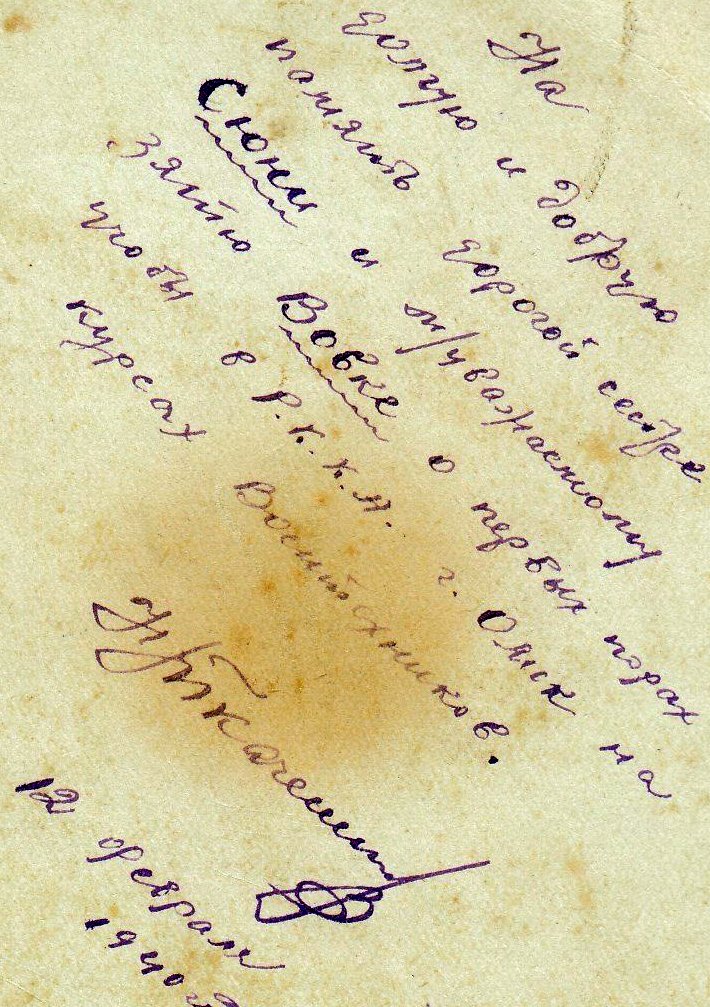 На
долгую и добрую
память дорогой сестре
Сюни и м/уважаемому
зятю Вовке о первых порах
учобы в Р.К.К.А. г. Омск на
курсах Воентехников.
12 февраля
1940г